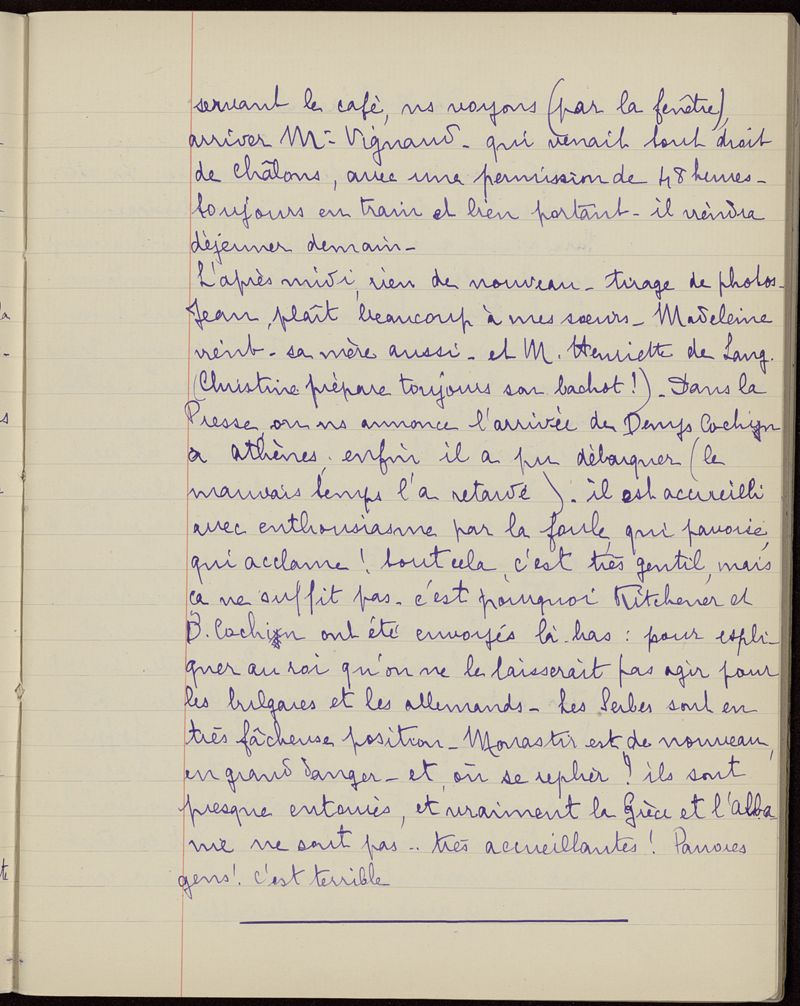 servant le café, ns voyons (par la fenêtre),
arriver Mr Vignaud - qui venait tout droit
de Châlons, avec une permission de 48 heures -
toujours en train et bien portant - il viendra
déjeuner demain -
L'après midi, rien de nouveau - tirage de photos -
Jean, plaît beaucoup à mes sœurs - Madeleine
vient - sa mère aussi - et M. Henriette de Lang.
(Christine prépare toujours son bachot!) - Dans la
Presse, on ns annonce l'arrivée de Denys Cochin
à Athènes; enfin il a pu débarquer (le
mauvais temps l'a retardé). il est accueilli
avec enthousiasme par la foule, qui pavoise,
qui acclame! tout cela, c'est très gentil, mais
ça ne suffit pas - c'est pourquoi Kitchener et
D. Cochin ont été envoyés là-bas : pour expli-
quer au roi qu'on ne le laisserait pas agir pour
les bulgares et les allemands - Les Serbes sont en
très fâcheuse position - Monastir est de nouveau,
en grand danger - et, où se replier? ils sont
presque entourés, et vraiment la Grèce et l'Alba
nie ne sont pas .. très accueillantes! Pauvres
gens! c'est terrible